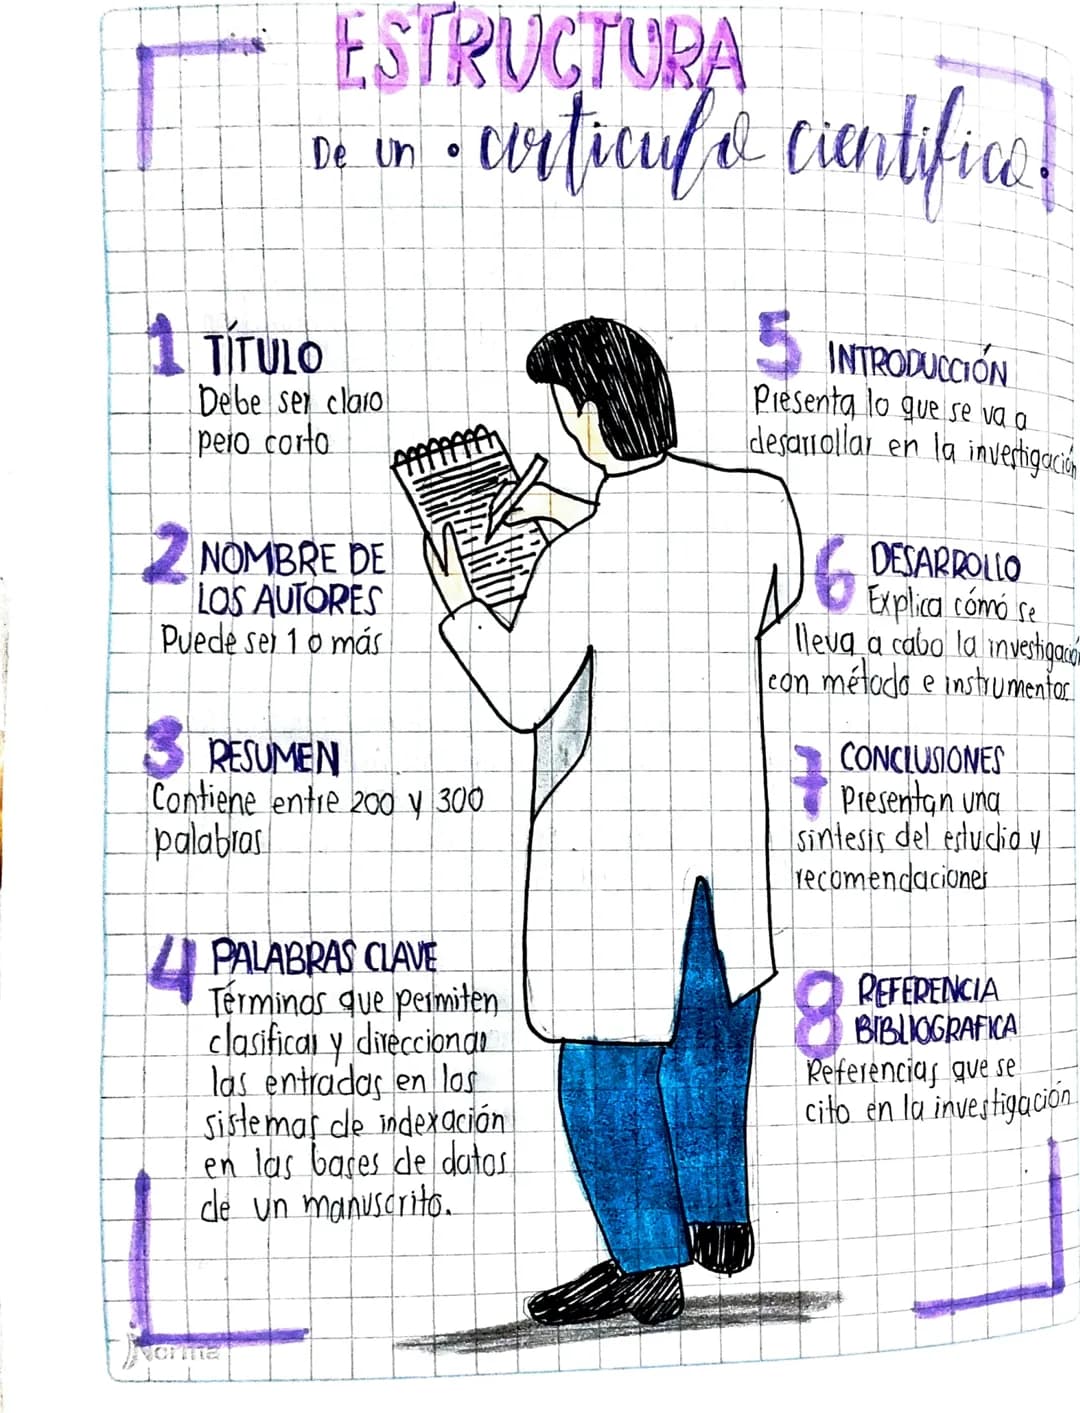 ESTRUCTURA
De un • artículo científico.
1 TÍTULO
Debe ser claro
pero corto
2 NOMBRE DE
LOS AUTORES
Puede ser 1 o más
3 RESUMEN
Contiene entre 200 y 300
palabras
4 PALABRAS CLAVE
Términos que permiten
clasificar y direccionar
las entradas en los
sistemas de indexación
en las bases de datos
de un manuscrito.
5 INTRODUCCIÓN
Presenta lo que se va a
desarrollar en la investigación
6 DESARROLLO
Explica cómo se
lleva a cabo la investigación
con método e instrumentos
7 CONCLUSIONES
Presentan una
sintesis del estudio y
recomendaciones
8 REFERENCIA
BIBLIOGRAFICA
Referencias que se
cito en la investigación
Norma